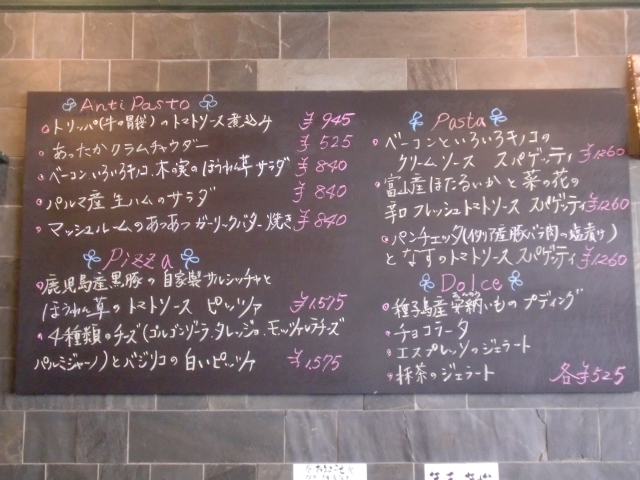 Anti Pasto
・トリッパ(牛の胃袋)のトマトソース煮込み ¥945
・あったかクラムチャウダー ¥525
・ベーコン いろいろキノコ、木の実のほうれん草サラダ ¥840
・パルマ産生ハムのサラダ ¥840
・マッシュルームのあつあつガーリックバター焼き ¥840
Pizza
・鹿児島産黒豚の自家製サルシッチャと
ほうれん草のトマトソース ピッツァ ¥1,575
・4種類のチーズ(ゴルゴンゾーラ、タレッジョ、モッツァレラチーズ
パルミジャーノ)とバジリコの白いピッツァ ¥1,575
Pasta
・ベーコンといろいろキノコの
クリームソース スパゲッティ ¥1260
・富山産ほたるいかと菜の花の
辛口フレッシュトマトソース スパゲッティ ¥1260
・パンチェッタ(イタリア産豚バラ肉の塩漬け)
となすのトマトソース スパゲッティ ¥1260
Dolce
・種子島産安納いものプディング
・チョコラータ
・エスプレッソのジェラート
・抹茶のジェラート 各¥525